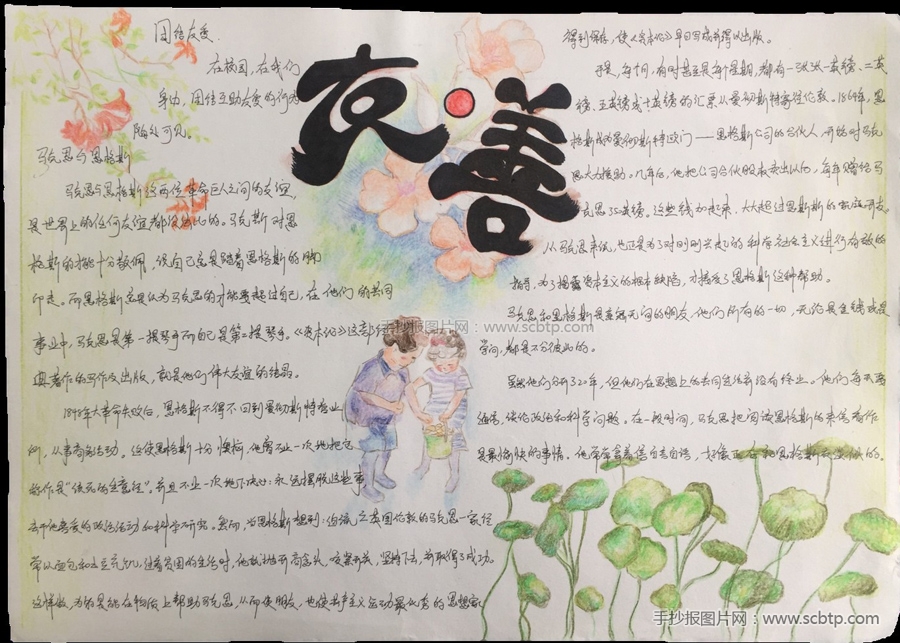 团结友爱
在校园，在我们
身边，团结互助友爱的行为
随处可见。
友善
马克思与恩格斯
马克思与恩格斯这两位革命巨人之间的友谊，
是世界上的任何友谊都没法比的。马克斯对恩
格斯的才能十分敬佩，说自己总是踏着恩格斯的脚
印走。而恩格斯总是认为马克思的才能要超过自己，在他们的共同
事业中，马克思是第一提琴手而自己是第二提琴手。《资本论》这部经
典著作的写作及出版，就是他们伟大友谊的结晶。
1848年大革命失败后，恩格斯不得不回到曼彻斯特营业
所，从事商务活动。这使恩格斯十分懊恼，他曾不止一次地把它
称作是“该死的生意经”。并且不止一次地下决心：永远摆脱这些事
去干他喜爱的政治活动和科学研究。然而，当恩格斯想到，被流亡英国伦敦的马克思一家经
常以面包和土豆充饥，过着贫困的生活时，他就抛开弃商念头，咬紧牙关，坚持下去，并取得了成功。
这样做，为的是能在物质上帮助马克思，从而使朋友，也使共产主义运动最优秀的思想家
得到保存，使《资本论》早日写成并得以出版。
于是，每个月，有时甚至是每个星期，都有一张张一英镑、二英
镑、五英镑或十英镑的汇票从曼彻斯特寄往伦敦。1864年，恩
格斯成为曼彻斯特欧门——恩格斯公司的合伙人，开始对马克
思大力援助。几年后，他把公司合伙股权卖出以后，每年赠给马
克思350英镑。这些钱加起来，大大超过恩格斯的家庭开支。
从马克思来说，也正是为了对时刻兴起的科学社会主义进行有效的
指导，为了揭露资本主义的根本缺陷，才接受了恩格斯这种帮助。
马克思和恩格斯是亲密无间的朋友，他们所有的一切，无论是金钱或是
学问，都是不分彼此的。
虽然他们分开了20年，但他们在思想上的共同生活并没有终止。他们每天要
通信，谈论政治和科学问题。在一段时间，马克思把阅读恩格斯的来信看作
是最愉快的事情。他常常拿着信自言自语，好像正在和恩格斯交谈似的。
手抄报图片网：www.scbtp.com
手抄报图片网：www.scbtp.com